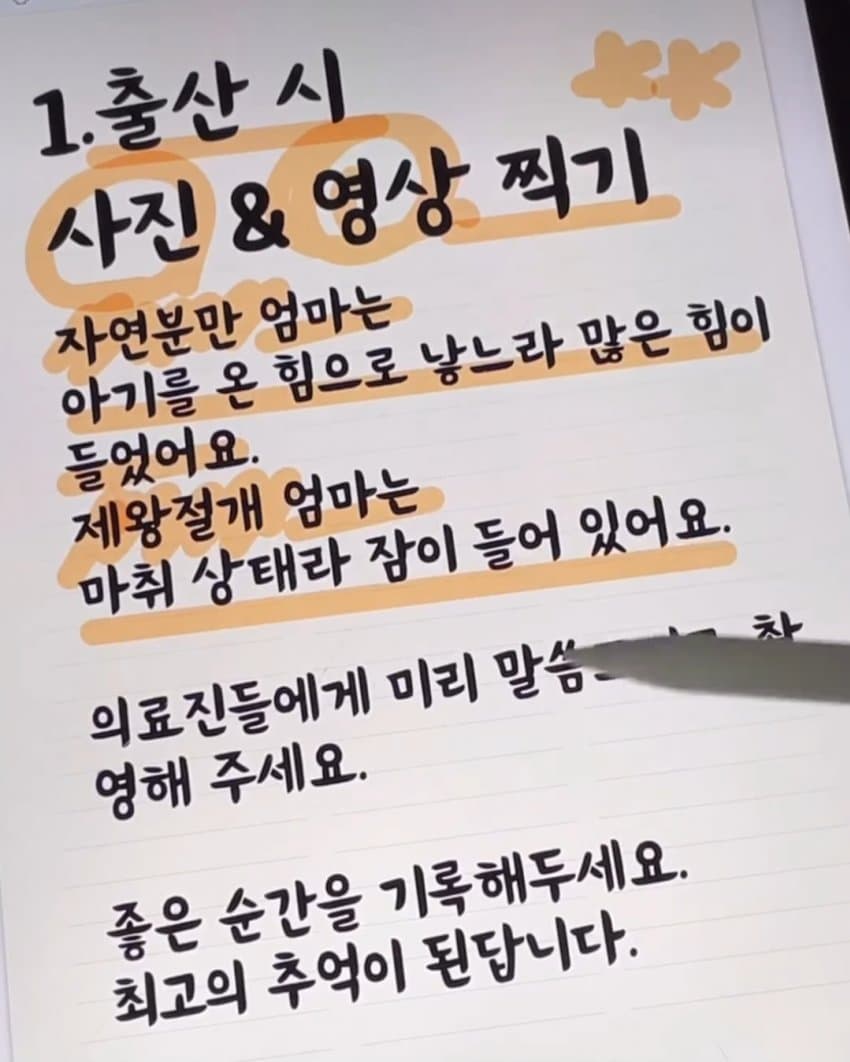 1.출산 시
사진 & 영상 찍기
자연분만 엄마는
아기를 온 힘으로 낳느라 많은 힘이
들었어요.
제왕절개 엄마는
마취 상태라 잠이 들어 있어요.
의료진들에게 미리
영해 주세요.
좋은 순간을 기록해두세요.
최고의 추억이 된답니다.